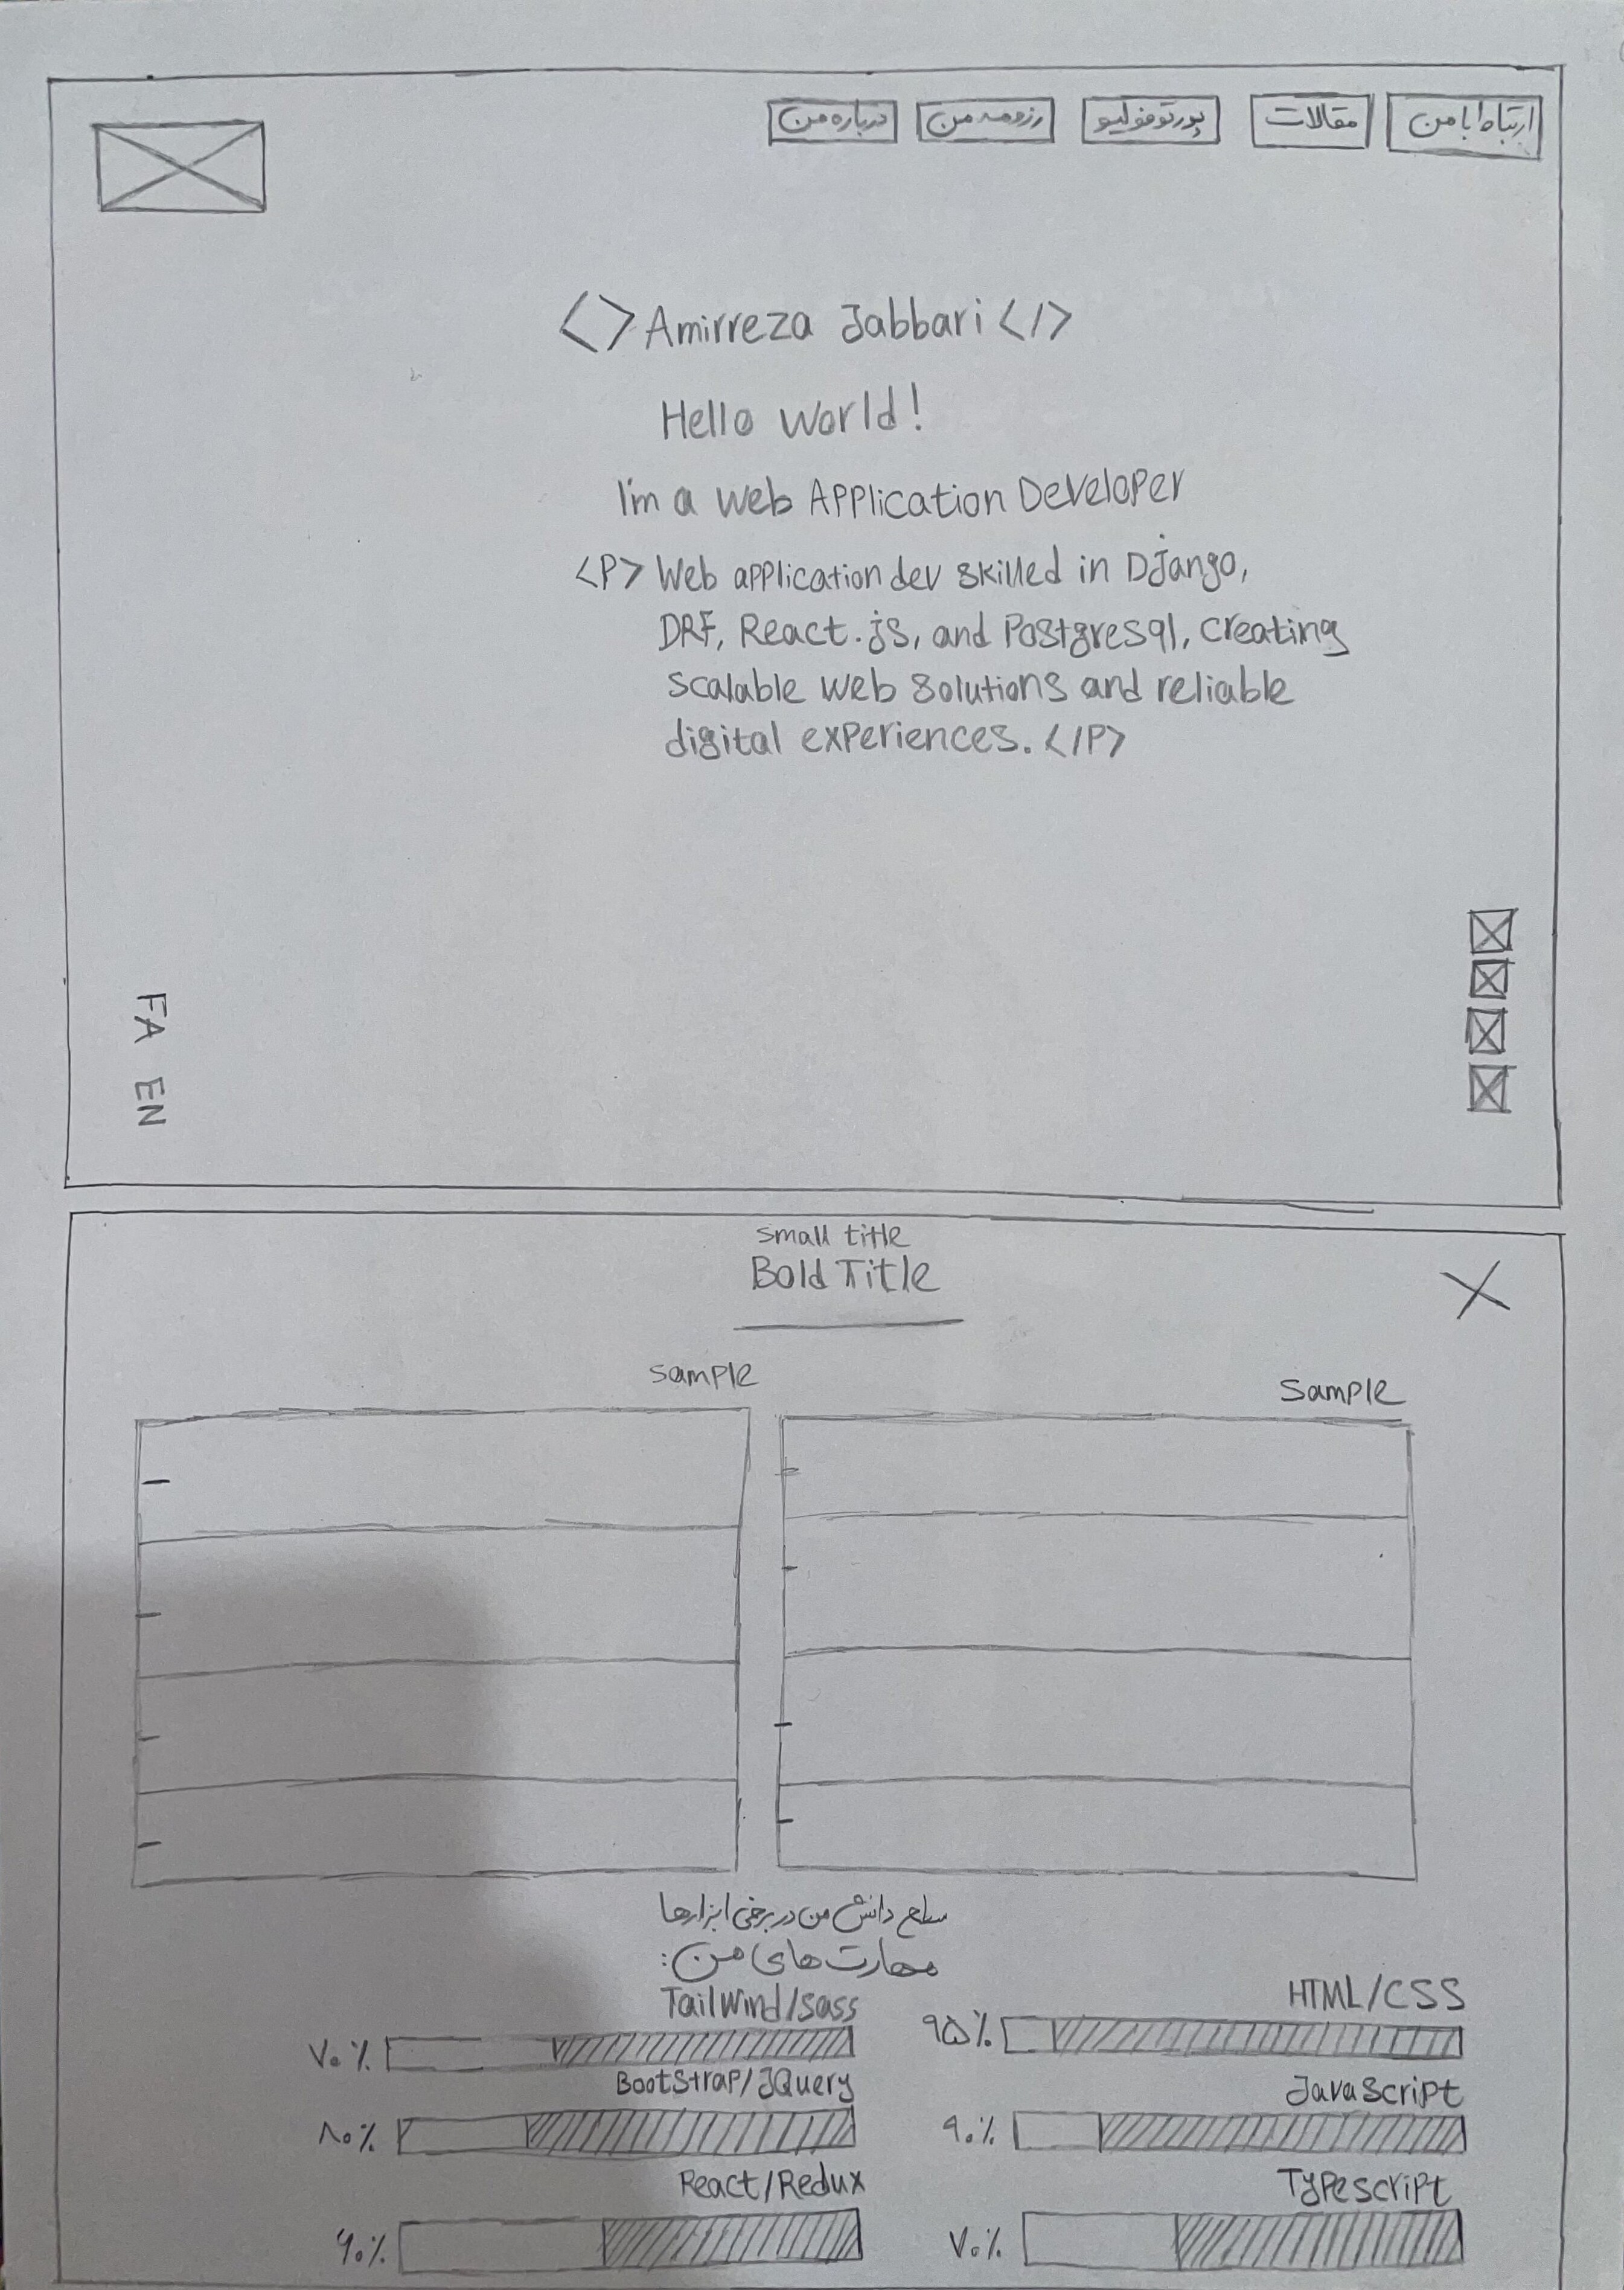 ارتباط با من
مقالات
پورتوفولیو
رزومه من
درباره من
<> Amirreza Jabbari </>
Hello World!
I'm a web Application Developer
<P> Web application dev skilled in Django,
DRF, React.js, and Postgresql, creating
scalable web solutions and reliable
digital experiences. </P>
FA EN
small title
Bold Title
X
sample
sample
سطح دانش من در برخی ابزارها
مهارت های من:
HTML/CSS
۹۵٪
TailWind/sass
۷۰٪
JavaScript
۹۰٪
BootStrap/JQuery
۸۰٪
Typescript
۷۰٪
React/Redux
۶۰٪